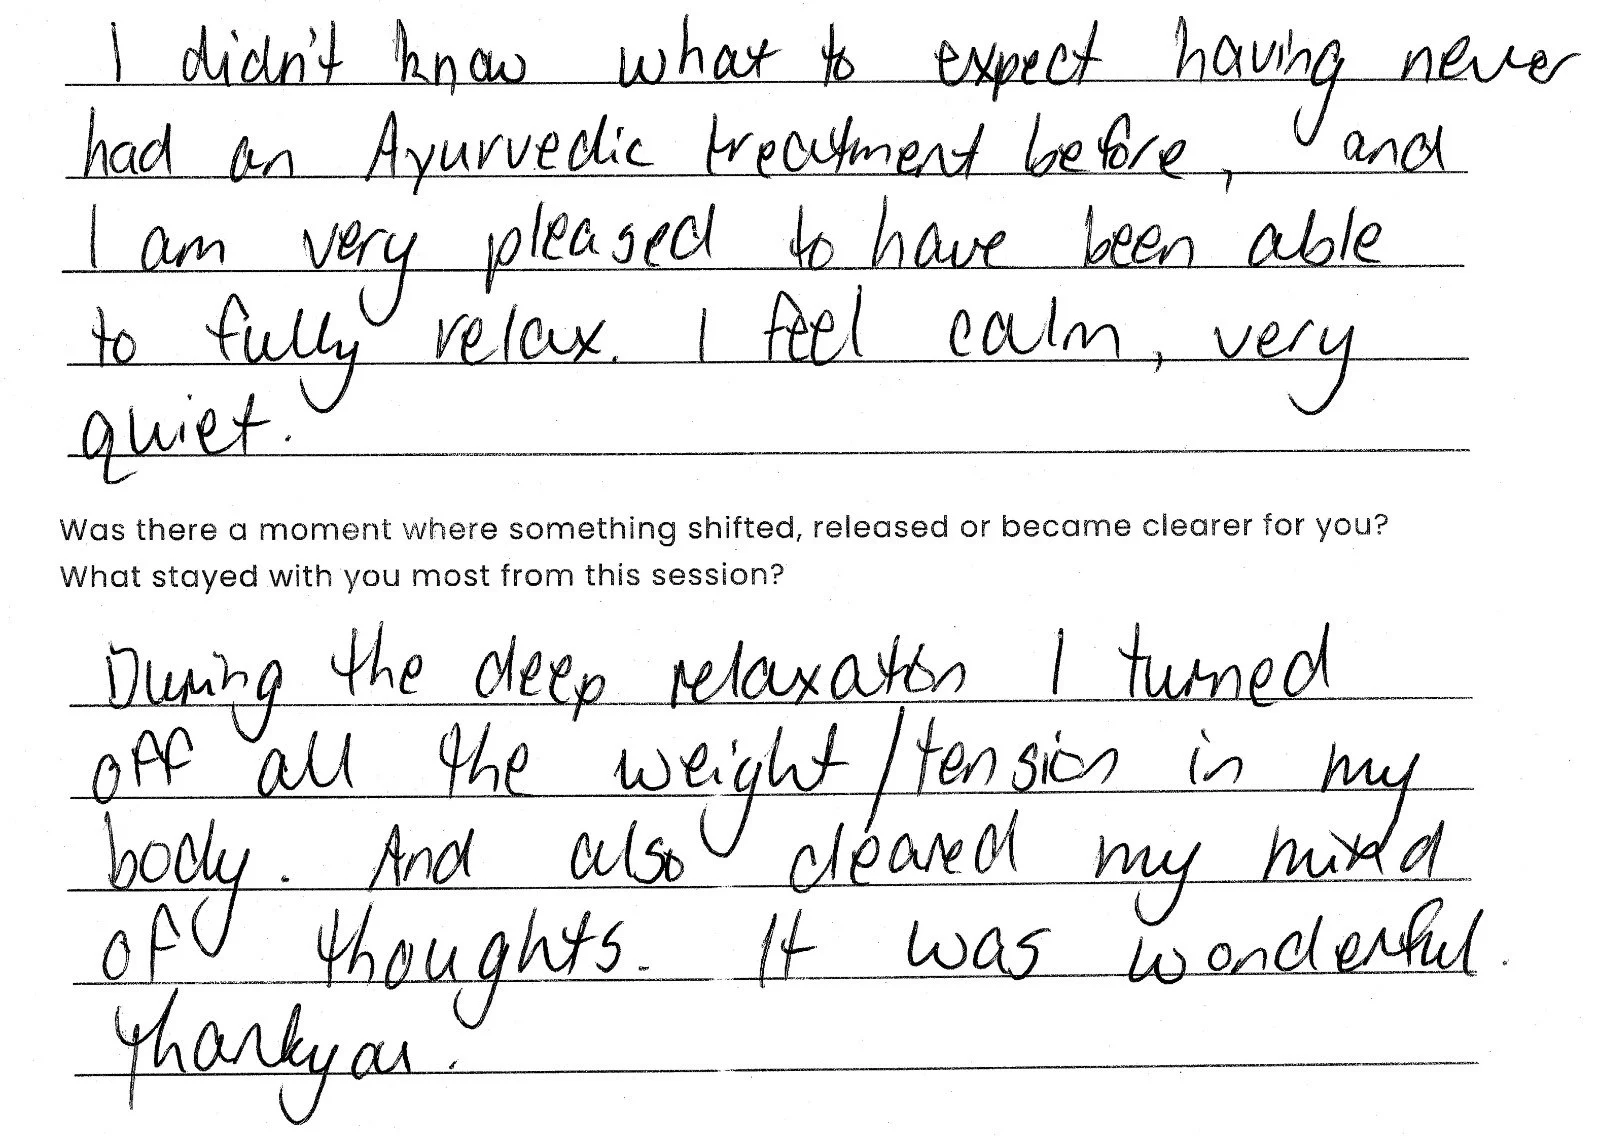 I didn't know what to expect having never
had an Ayurvedic treatment before, and
I am very pleased to have been able
to fully relax. I feel calm, very
quiet.
Was there a moment where something shifted, released or became clearer for you?
What stayed with you most from this session?
During the deep relaxation I turned
off all the weight/tension in my
body. And also cleared my mind
of thoughts. It was wonderful.
Thankyou.